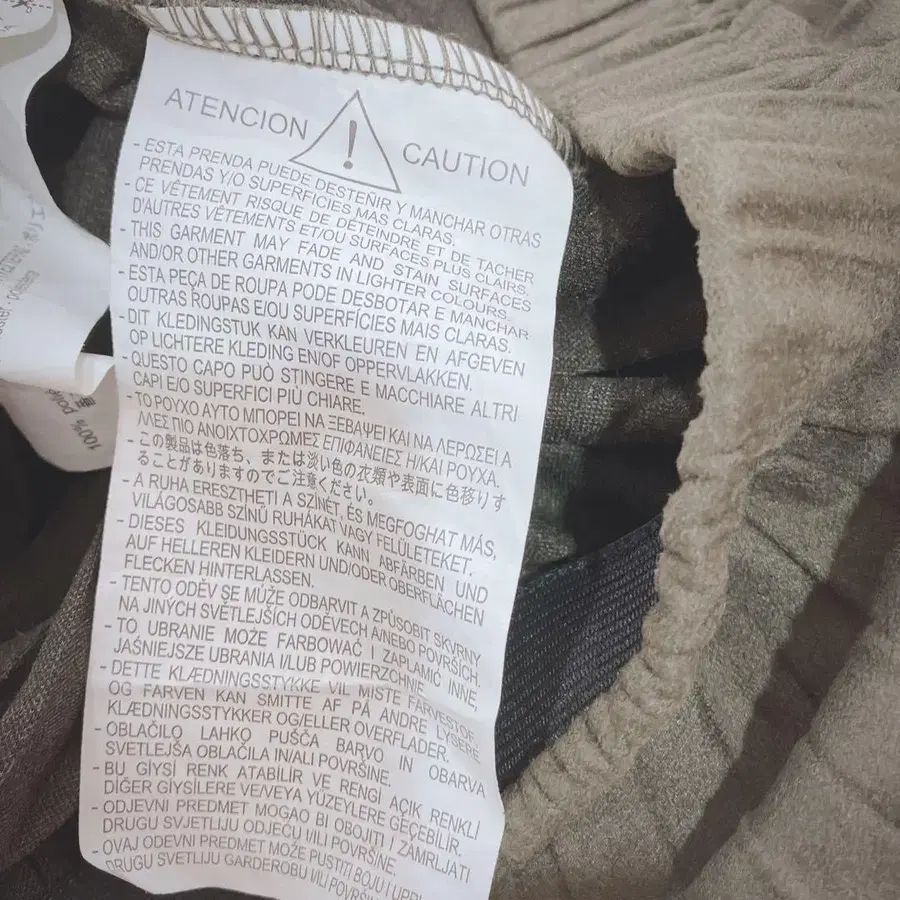 ATENCION ! CAUTION
- ESTA PRENDA PUEDE DESTENIR Y MANCHAR OTRAS
PRENDAS Y/O SUPERFICIES MAS CLARAS.
- CE VÊTEMENT RISQUE DE DÉTEINDRE ET DE TACHER
D'AUTRES VÊTEMENTS ET/OU SURFACES PLUS CLAIRS.
- THIS GARMENT MAY FADE AND STAIN SURFACES
AND/OR OTHER GARMENTS IN LIGHTER COLOURS.
- ESTA PEÇA DE ROUPA PODE DESBOTAR E MANCHAR
OUTRAS ROUPAS E/OU SUPERFÍCIES MAIS CLARAS.
- DIT KLEDINGSTUK KAN VERKLEUREN EN AFGEVEN
OP LICHTERE KLEDING EN/OF OPPERVLAKKEN.
- QUESTO CAPO PUÒ STINGERE E MACCHIARE ALTRI
CAPI E/O SUPERFICI PIÙ CHIARE.
- ΤΟ ΡΟΥΧΟ ΑΥΤΟ ΜΠΟΡΕΙ ΝΑ ΞΕΒΑΨΕΙ ΚΑΙ ΝΑ ΛΕΡΩΣΕΙ Α
ΛΛΕΣ ΠΙΟ ΑΝΟΙΧΤΟΧΡΩΜΕΣ ΕΠΙΦΑΝΕΙΕΣ Η/ΚΑΙ ΡΟΥΧΑ.
- この製品は色落ち、または淡い色の衣類や表面に色移りす
ることがありますのでご注意ください。
- A RUHA ERESZTHETI A SZÍNÉT, ÉS MEGFOGHAT MÁS,
VILÁGOSABB SZÍNŰ RUHÁKAT VAGY FELÜLETEKET.
- DIESES KLEIDUNGSSTÜCK KANN ABFÄRBEN UND
AUF HELLEREN KLEIDERN UND/ODER OBERFLÄCHEN
FLECKEN HINTERLASSEN.
- TENTO ODĚV SE MŮŽE ODBARVIT A ZPŮSOBIT SKVRNY
NA JINÝCH SVĚTLEJŠÍCH ODĚVECH A/NEBO POVRŠÍCH.
- TO UBRANIE MOŻE FARBOWAĆ I ZAPLAMIĆ INNE,
JAŚNIEJSZE UBRANIA I/LUB POWIERZCHNIE.
- DETTE KLÆDNINGSSTYKKE VIL MISTE FARVESTOF,
OG FARVEN KAN SMITTE AF PÅ ANDRE LYSERE
KLÆDNINGSSTYKKER OG/ELLER OVERFLADER.
- OBLAČILO LAHKO PUŠČA BARVO IN OBARVA
SVETLEJŠA OBLAČILA IN/ALI POVRŠINE.
- BU GİYSİ RENK ATABİLİR VE RENGİ AÇIK RENKLİ
DİĞER GİYSİLERE VE/VEYA YÜZEYLERE GEÇEBİLİR.
- ODJEVNI PREDMET MOGAO BI OBOJITI I ZAMRLJATI
DRUGU SVJETLIJU ODJEĆU I/ILI POVRŠINE.
- OVAJ ODEVNI PREDMET MOŽE PUSTITI BOJU I
DRUGU SVETLIJU GARDEROBU I/ILI
100%